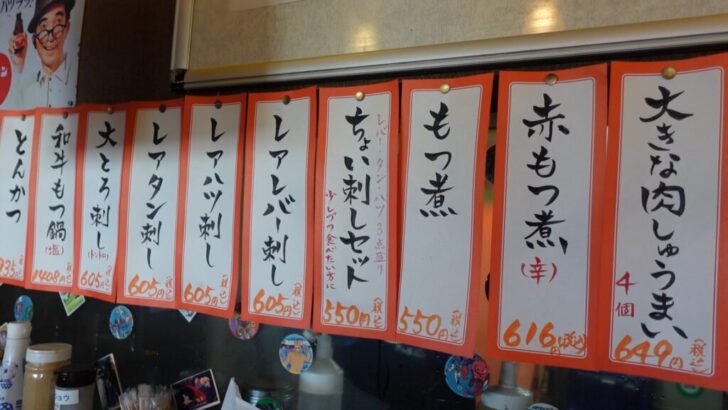 大きな肉しゅうまい
4個
649円(税込)
赤もつ煮
(辛)
616円(税込)
もつ煮
550円(税込)
レバー・タン・ハツ 3点盛り
ちょい刺しセット
少しづつ食べたい方に
550円(税込)
レアレバー刺し
605円(税込)
レアハツ刺し
605円(税込)
レアタン刺し
605円(税込)
大とろ刺し
(トントロ)
605円(税込)
和牛もつ鍋
(塩)
1408円(税込)
とんかつ
935円(税込)
ハツラツ!